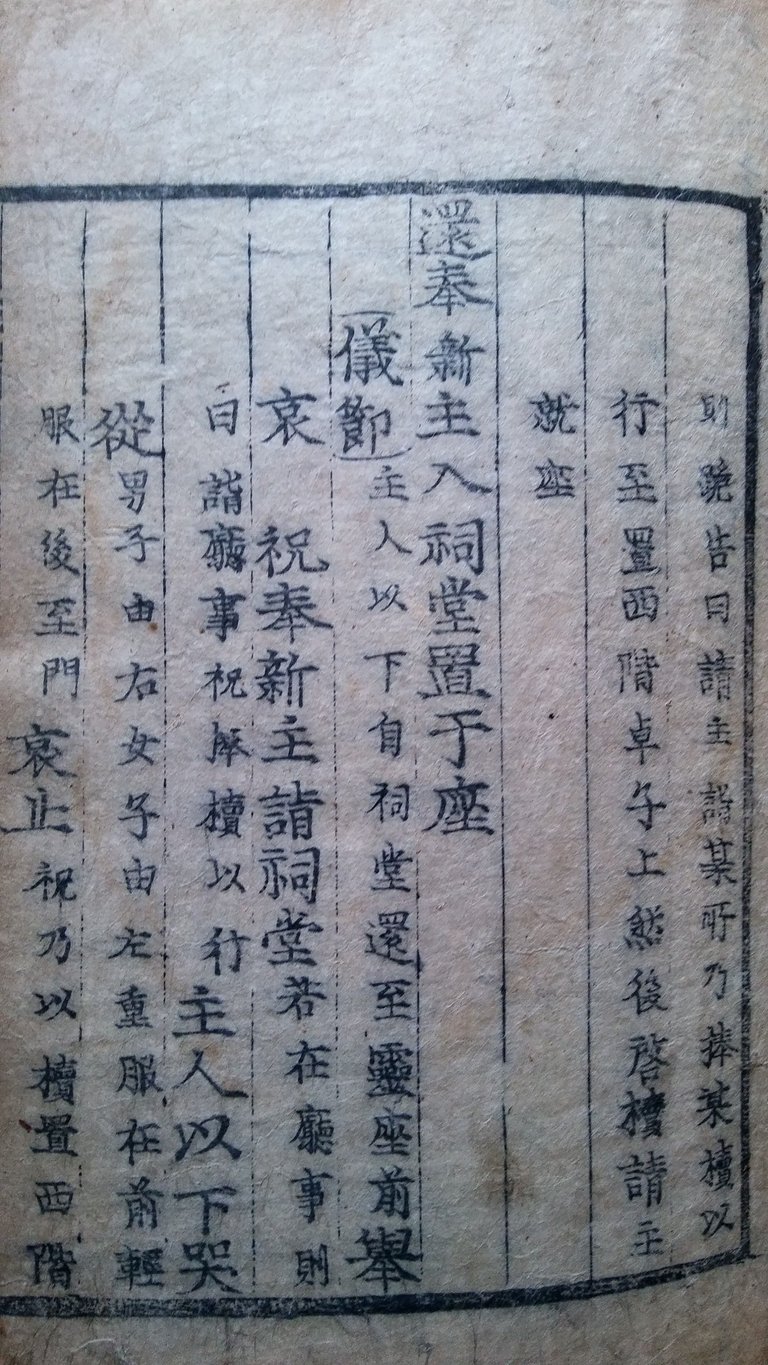 則跪告曰請主詣某所乃捧某櫝以
行至置西階卓子上然後啓櫝請主
就座
還奉新主入祠堂置于座
儀節主人以下自祠堂還至靈座前舉
哀 祝奉新主詣祠堂若在廳事則
曰詣廳事祝捧櫝以行主人以下哭
從男子由右女子由左重服在前輕
服在後至門哀止祝乃以櫝置西階